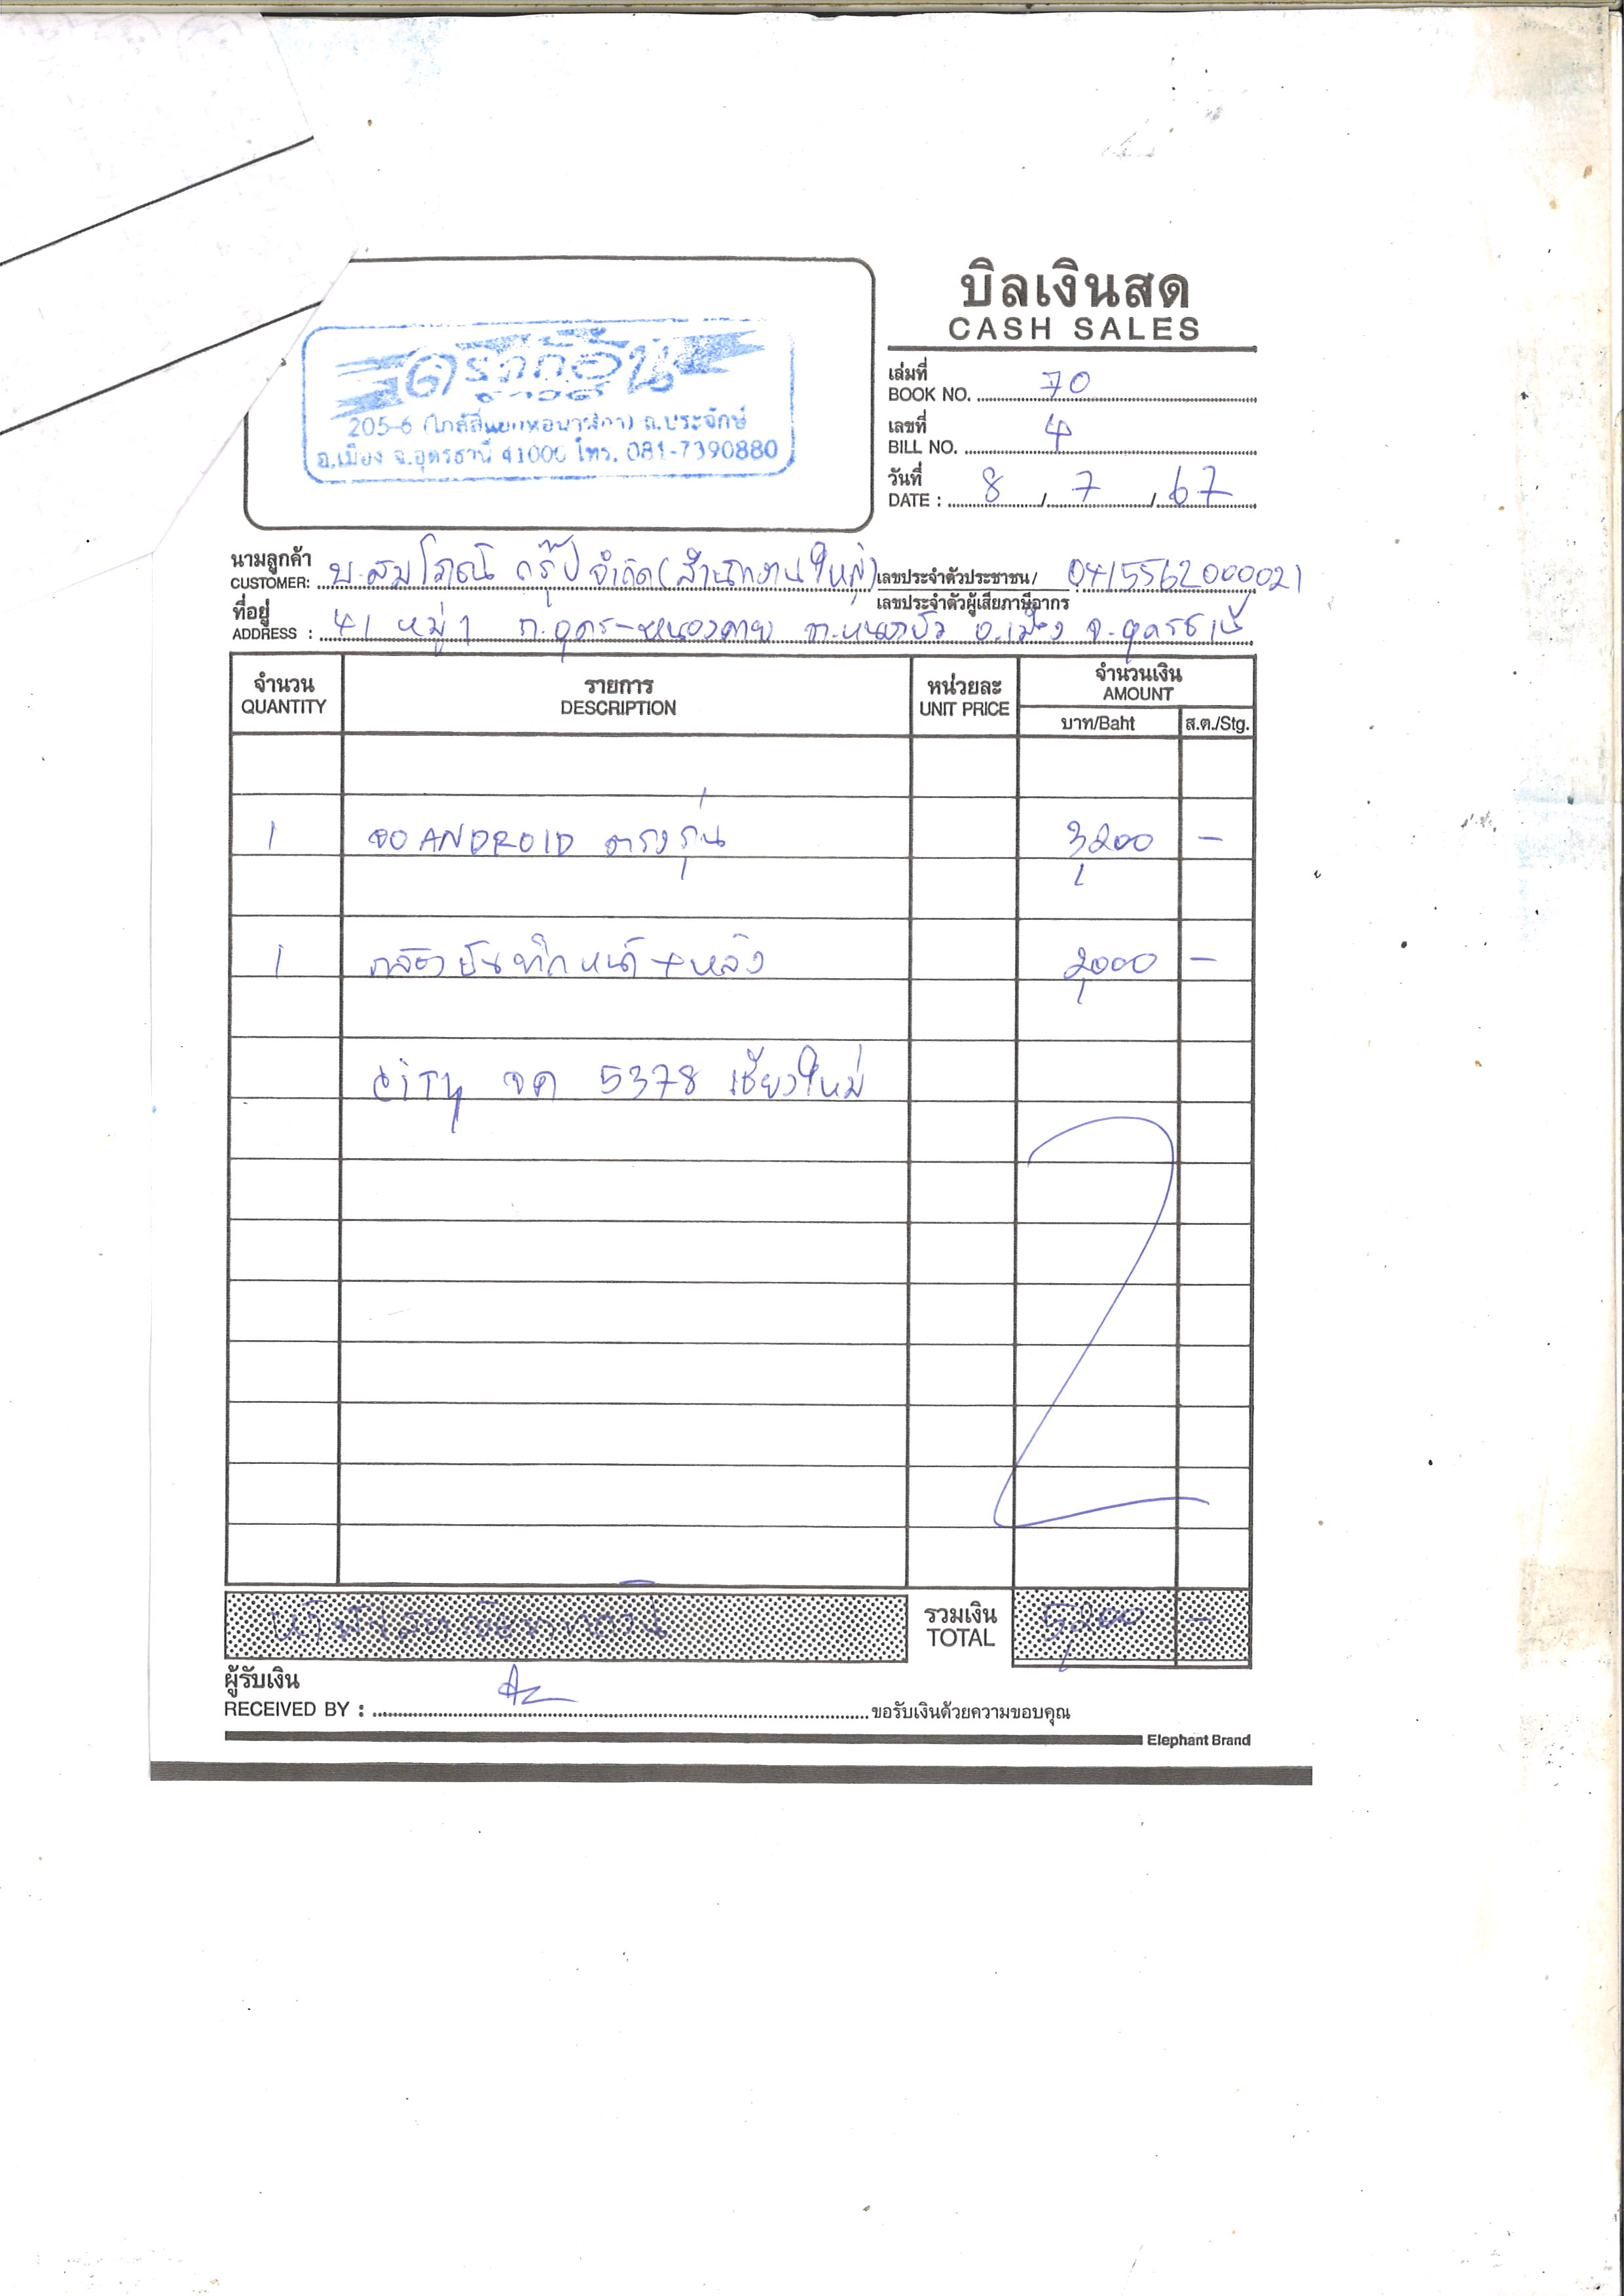 บิลเงินสด
CASH SALES
ดราก้อน
205-6 (ใกล้สี่แยกหอนาฬิกา) ถ.ประจักษ์
อ.เมือง จ.อุดรธานี 41000 โทร. 081-7390880
เล่มที่
BOOK NO. 70
เลขที่
BILL NO. 4
วันที่
DATE : 8 / 7 / 67
นามลูกค้า
CUSTOMER: บ.สมโภณ์ กรุ๊ป จำกัด (สำนักงานใหญ่) เลขประจำตัวประชาชน/ 0415562000021
เลขประจำตัวผู้เสียภาษีอากร
ที่อยู่
ADDRESS : 41 หมู่ 1 ถ.อุดร-หนองคาย ต.หมากแข้ง อ.เมือง จ.อุดรธานี
จำนวน รายการ หน่วยละ จำนวนเงิน
QUANTITY DESCRIPTION UNIT PRICE AMOUNT
บาท/Baht ส.ต./Stg.
1 จอ ANDROID ตรงรุ่น 3,200 -
1 กล้องบันทึกหน้า+หลัง 2,000 -
CITY จค 5378 เชียงใหม่
ห้าพันสองร้อยบาทถ้วน รวมเงิน 5,200 -
TOTAL
ผู้รับเงิน
RECEIVED BY : ขอรับเงินด้วยความขอบคุณ
Elephant Brand